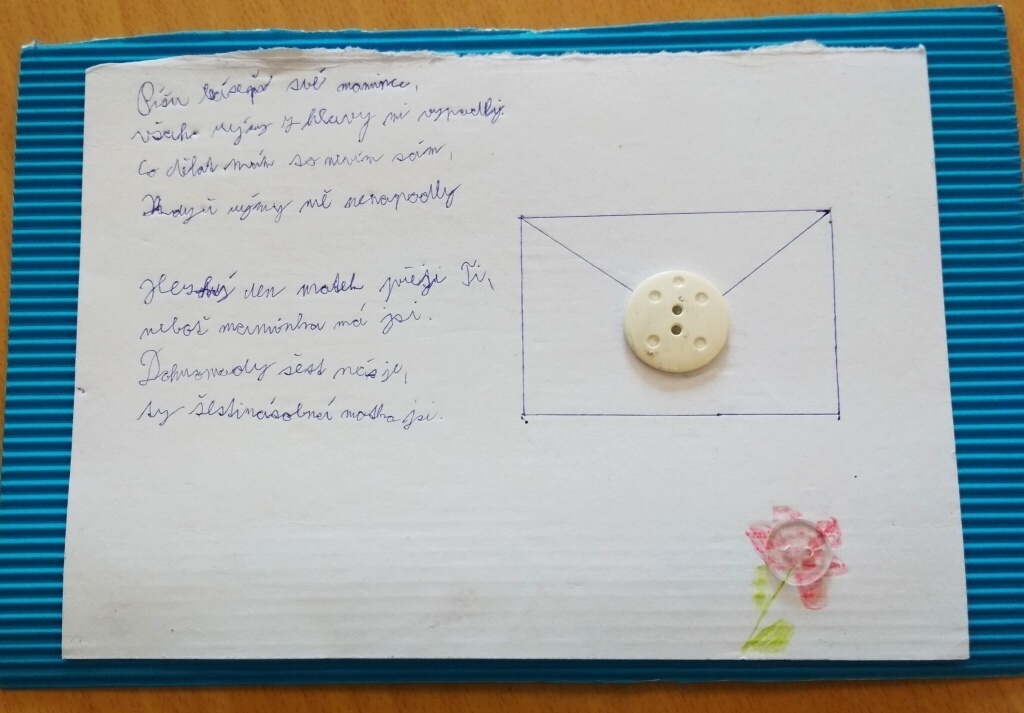 Píšu báseň své mamince,
všechny rýmy z hlavy mi vypadly.
Co dělat mám to nevím sám,
Když rýmy mě nenapadly
Hezký den matek přeji Ti,
neboť maminka má jsi.
Dohromady šest nás je,
ty šestinásobná matka jsi.